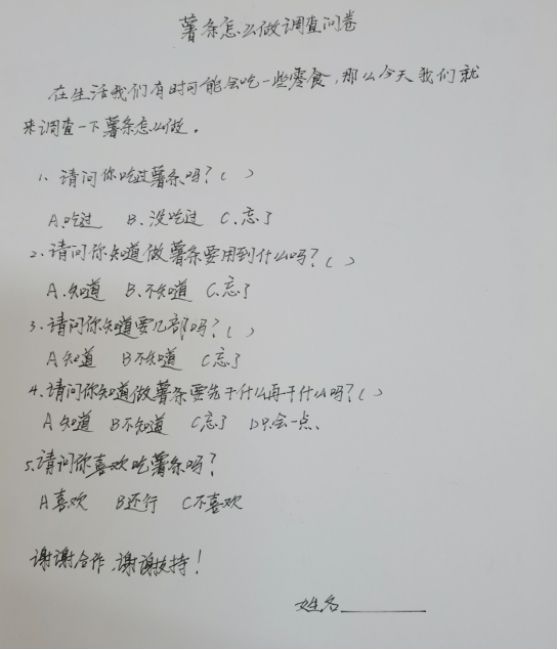 薯条怎么做调查问卷
在生活我们有时可能会吃一些零食,那么今天我们就
来调查一下薯条怎么做。
1、请问你吃过薯条吗?( )
A.吃过 B.没吃过 C.忘了
2.请问你知道做薯条要用到什么吗?( )
A.知道 B.不知道 C.忘了
3.请问你知道要几部吗?( )
A知道 B不知道 C忘了
4.请问你知道做薯条要先干什么再干什么吗?( )
A知道 B不知道 C忘了 D只会一点、
5.请问你喜欢吃薯条吗?
A喜欢 B还行 C不喜欢
谢谢合作,谢谢支持!
姓名